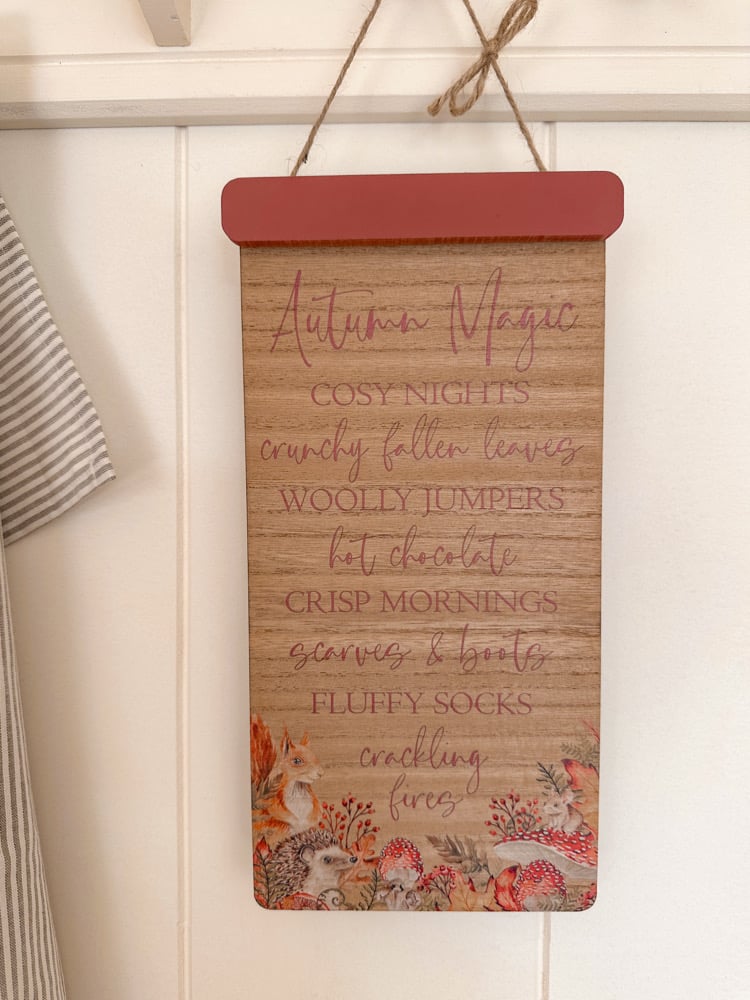 Autumn Magic
COSY NIGHTS
crunchy fallen leaves
WOOLLY JUMPERS
hot chocolate
CRISP MORNINGS
scarves & boots
FLUFFY SOCKS
crackling
fires